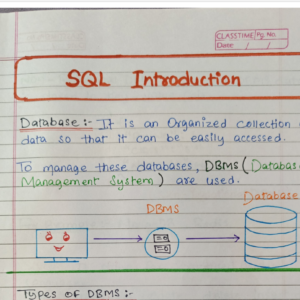 CLASSTIME Pg. No.
Date / /
SQL Introduction
Database :- It is an Organized collection
data so that it can be easily accessed.
To manage these databases, DBMS (Databas
Management System) are used.
Database
DBMS
Types OF DBMS :-